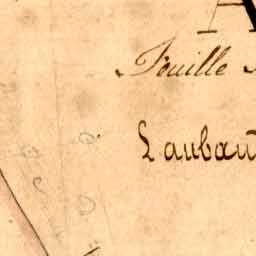 A
Feuille
Laubau